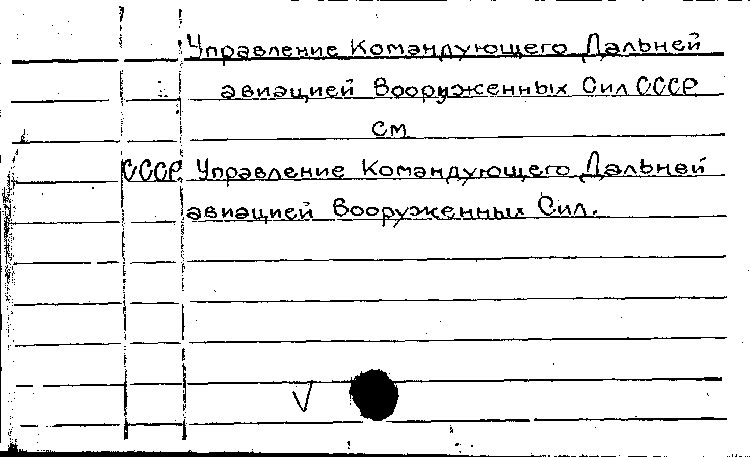 Управление Командующего Дальней
авиацией Вооруженных Сил СССР
см
СССР Управление Командующего Дальней
авиацией Вооруженных Сил.
V